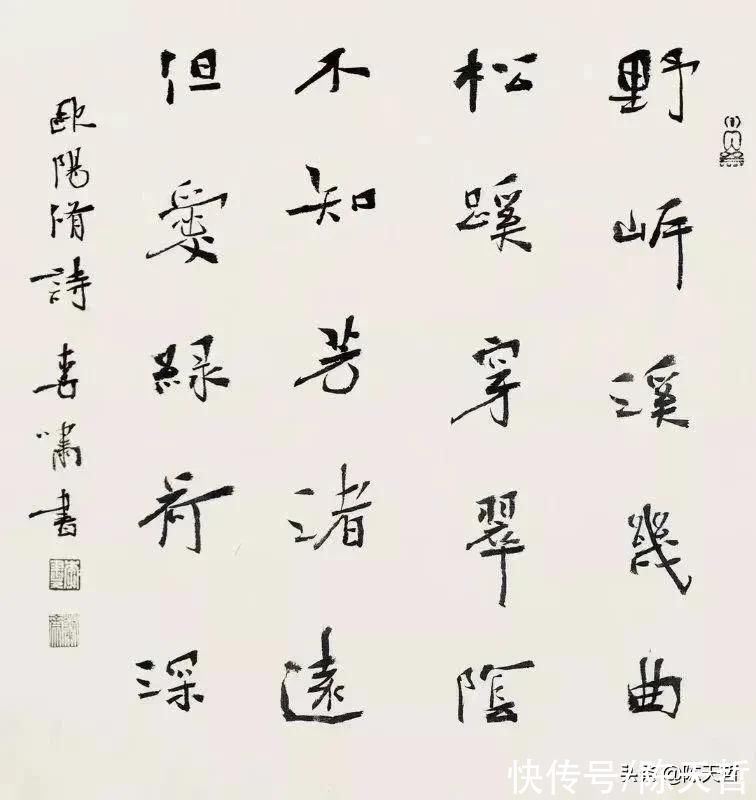 野岸溪幾曲
松蹊穿翠陰
不知芳渚遠
但愛綠荷深
歐陽脩詩 嘯書
快传号/陈天哲
头条 @陈天哲